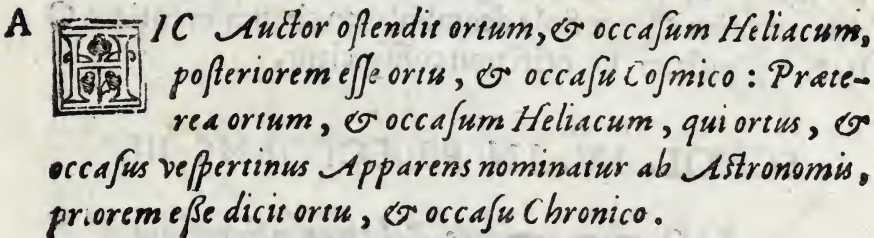 A HIC Auctor oſtendit ortum, & occaſum Heliacum,
poſteriorem eſſe ortu, & occaſu Coſmico: Præte-
rea ortum, & occaſum Heliacum, qui ortus, &
occaſus veſpertinus Apparens nominatur ab Aſtronomis,
priorem eſſe dicit ortu, & occaſu Chronico.